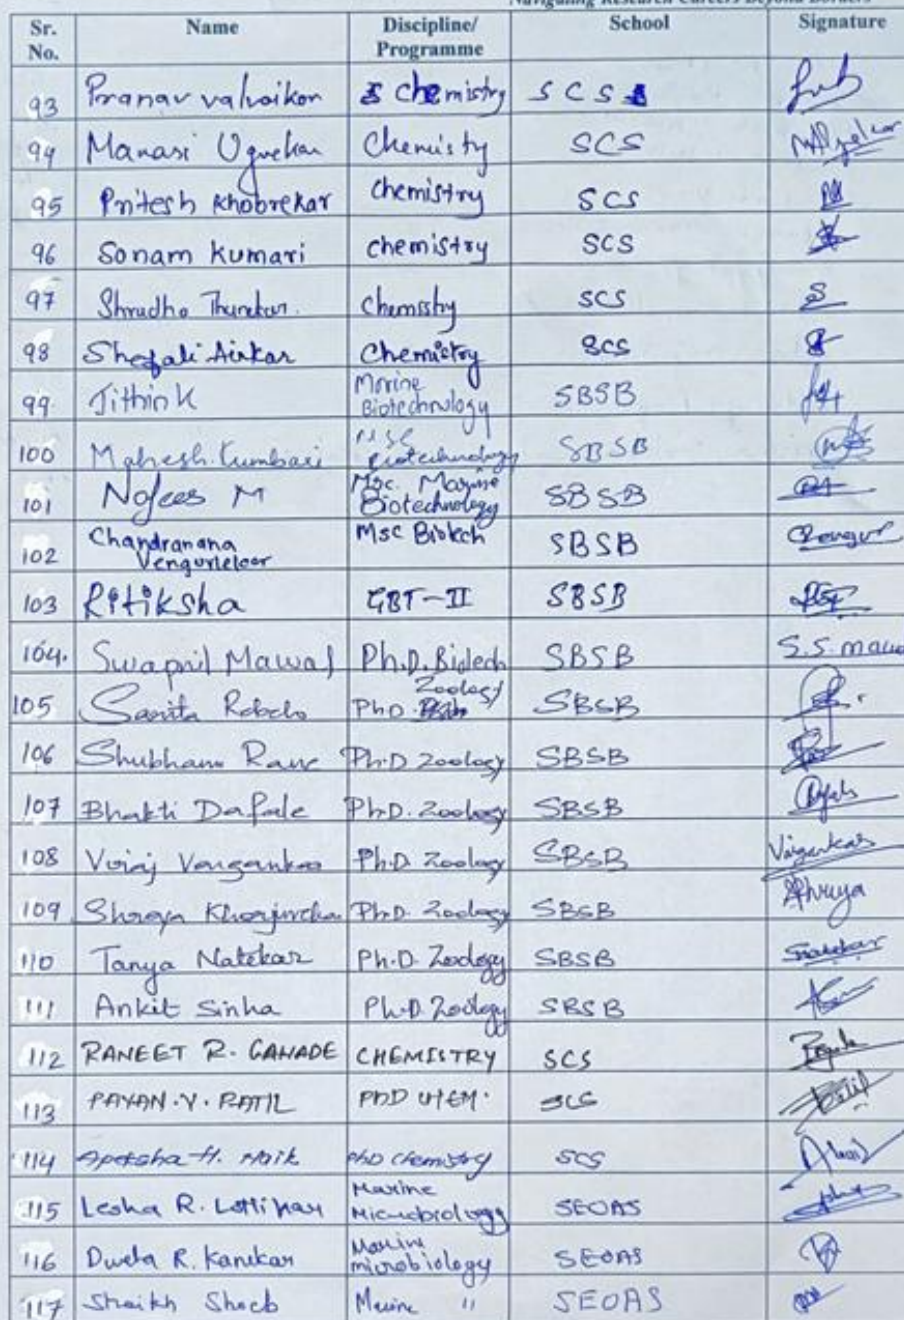 Navigating Research Careers Beyond Borders
Sr. No. Name Discipline/ Programme School Signature
93 Pranav valvaikar Chemistry SCS
94 Manasi Ugvekar Chemistry SCS
95 Pritesh Khobrekar Chemistry SCS
96 Sonam Kumari chemistry SCS
97 Chemistry SCS
98 Shefali Airkar Chemistry SCS
99 Jithin K Marine Biotechnology SBSB
100 Mahesh Kumbari Msc Biotechnology SBSB
101 Nafees M Msc. Marine Biotechnology SBSB
102 Chandranana Vengurlekar Msc Biotech SBSB
103 Ritiksha GBT-II SBSB
104. Swapnil Mawal Ph.D. Biotech SBSB
105 Sanita PhD Zoology SBSB
106 Shubham Rane Ph.D Zoology SBSB
107 Bhakti Dafale Ph.D. Zoology SBSB
108 Viraj Ph.D. Zoology SBSB
109 Ph.D. Zoology SBSB
110 Tanya Natekar Ph.D. Zoology SBSB
111 Ankit Sinha Ph.D. Zoology SBSB
112 RANEET R. GAHADE CHEMISTRY SCS
113 PATIL PhD CHEM. SCS
114 Apeksha H. Naik PhD chemistry SCS
115 Lesha R. Marine Microbiology SEOAS
116 R. Kanekar Marine microbiology SEOAS
117 Shaikh Shoeb Marine " SEOAS